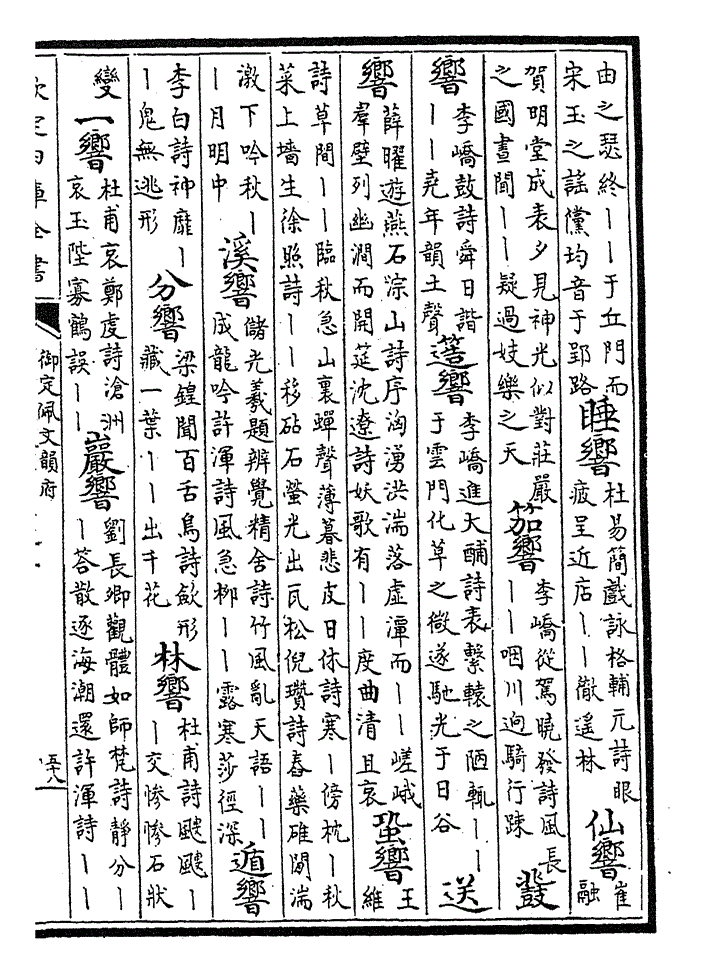 由之瑟終丨丨于丘門而
宋玉之謡儻均音于郢路
睡響
杜易簡戲詠格輔元詩眼
疲呈近店丨丨徹遥林
仙響
崔
融
賀明堂成表夕見神光似對莊嚴
之國晝聞丨丨疑過妓樂之天
笳響
李嶠從駕曉發詩風長
丨丨咽川逈騎行踈
鼗
響
李嶠鼓詩舜日諧
丨丨堯年韻土聲
簉響
李嶠進大酺詩表繫轅之陋輒丨丨
于雲門化草之微遂馳光于日谷
送
響
薛曜遊燕石淙山詩序洶湧洪湍落虛潭而丨丨嵯峨
羣壁列幽澗而開筵沈遼詩妖歌有丨丨度曲清且哀
蛩響
王
維
詩草間丨丨臨秋急山裏蟬聲薄暮悲皮日休詩寒丨傍枕丨秋
菜上墻生徐照詩丨丨移砧石螢光出瓦松倪瓚詩舂藥碓聞湍
激下吟秋丨
丨月明中
溪響
儲光羲題辨覺精舍詩竹風亂天語丨丨
成龍吟許渾詩風急柳丨丨露寒莎徑深
遁響
李白詩神靡丨
丨鬼無逃形
分響
梁鍠聞百舌鳥詩歛形
藏一葉丨丨出千花
林響
杜甫詩颼颼丨
丨交慘慘石狀
變
一響
杜甫哀鄭虔詩滄洲
哀玉陛寡鶴誤丨丨
巖響
劉長卿觀體如師梵詩靜分丨
丨答散逐海潮還許渾詩丨丨
欽定四庫全書
御定佩文韻府